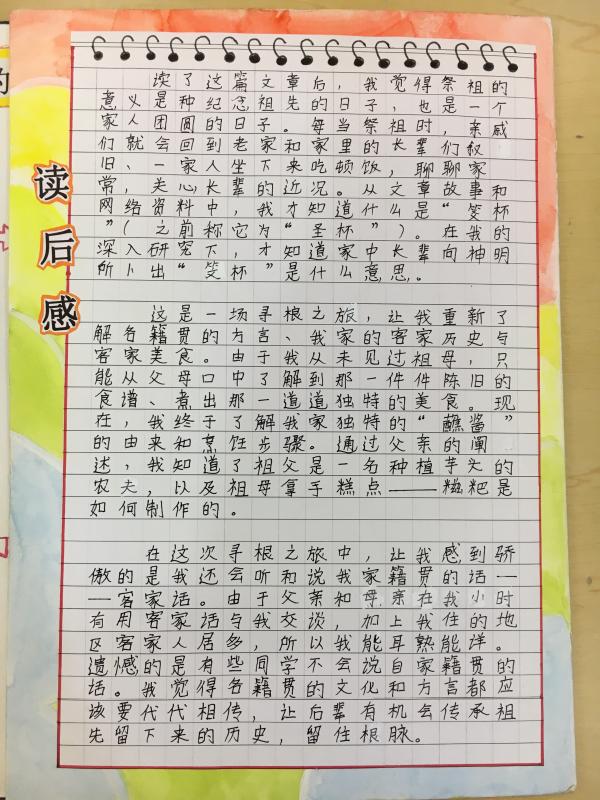 读后感
读了这篇文章后，我觉得祭祖的
意义是种纪念祖先的日子，也是一个
家人团圆的日子。每当祭祖时，亲戚
们就会回到老家和家里的长辈们叙
旧、一家人坐下来吃顿饭，聊聊家
常，关心长辈的近况。从文章故事和
网络资料中，我才知道什么是“筊杯
”（之前称它为“圣杯”）。在我的
深入研究下，才知道家中长辈向神明
所卜出“筊杯”是什么意思。
这是一场寻根之旅，让我重新了
解各籍贯的方言、我家的客家历史与
客家美食。由于我从未见过祖母，只
能从父母口中了解到那一件件陈旧的
食谱、煮出那一道道独特的美食。现
在，我终于了解我家独特的“蘸酱”
的由来和烹饪步骤。通过父亲的阐
述，我知道了祖父是一名种植芋头的
农夫，以及祖母拿手糕点——糍粑是
如何制作的。
在这次寻根之旅中，让我感到骄
傲的是我还会听和说我家籍贯的话—
—客家话。由于父亲和母亲在我小时
有用客家话与我交谈，加上我住的地
区客家人居多，所以我能耳熟能详。
遗憾的是有些同学不会说自家籍贯的
话。我觉得各籍贯的文化和方言都应
该要代代相传，让后辈有机会传承祖
先留下来的历史，留住根脉。